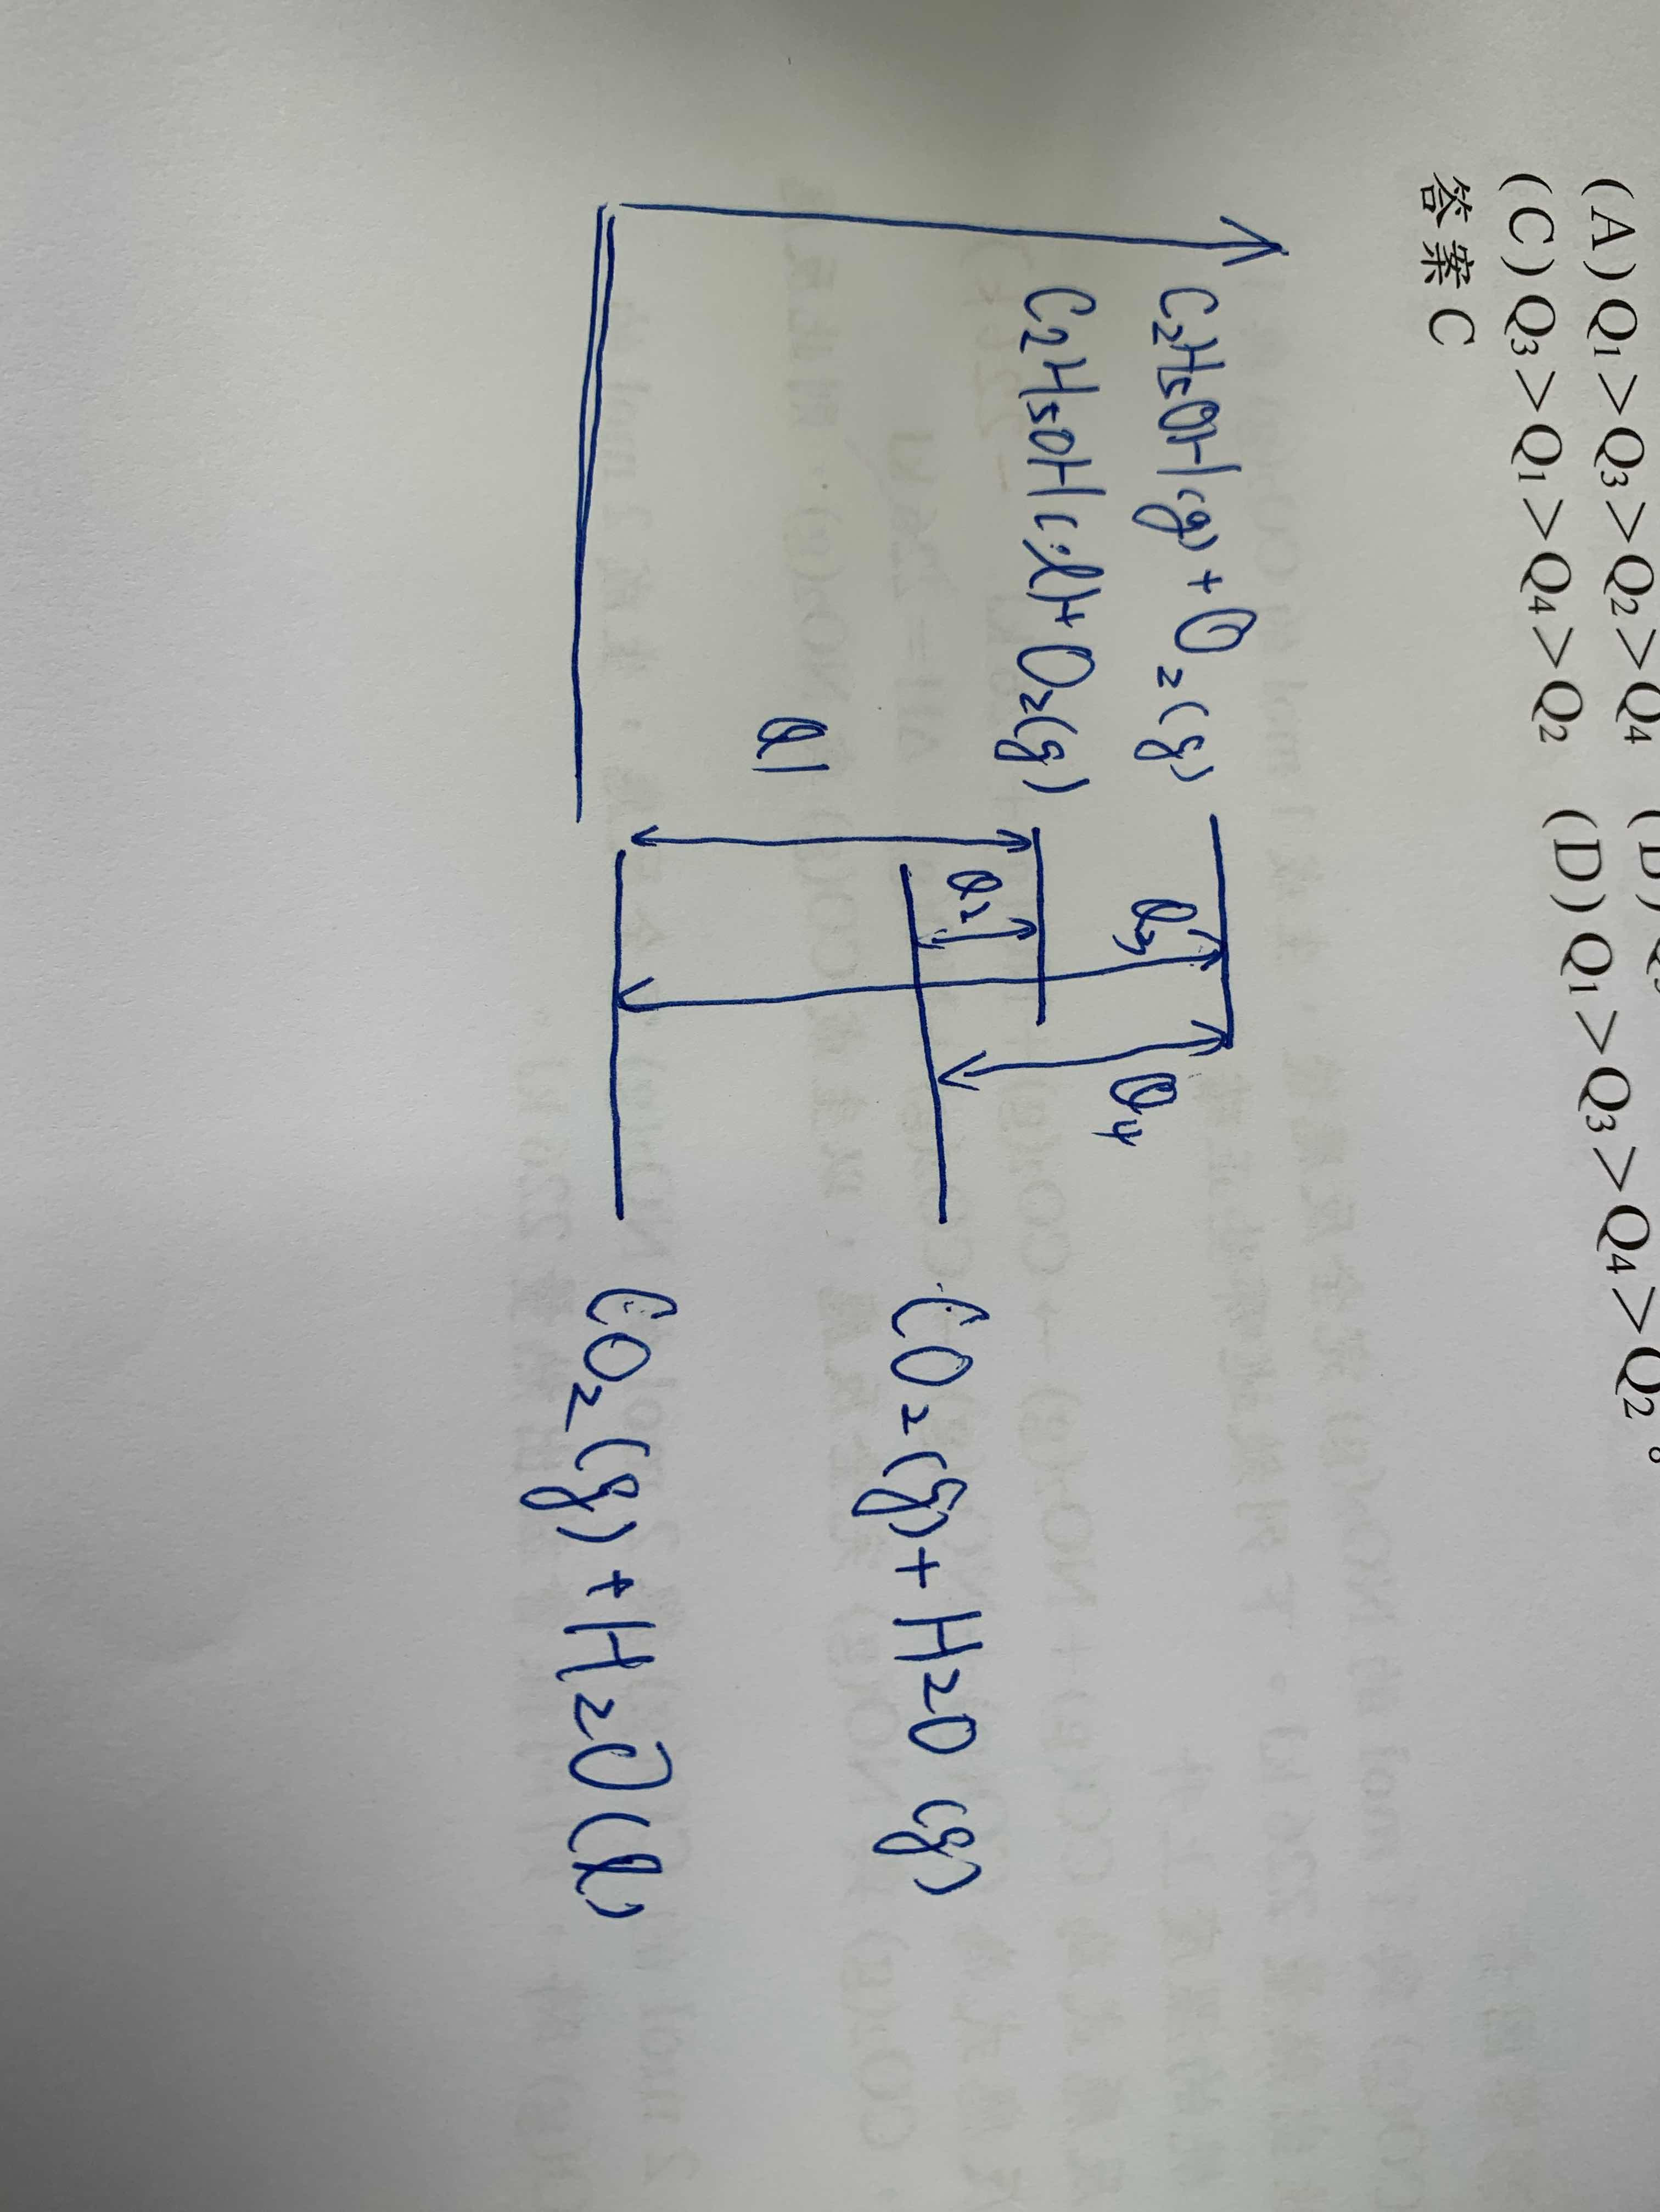 (A)Q₁>Q₃>Q₂>Q₄
(C)Q₃>Q₁>Q₄>Q₂ (D)Q₁>Q₃>Q₄>Q₂。
答案 C
C₂H₅OH(g)+O₂(g)
C₂H₅OH(l)+O₂(g)
Q₃
Q₄
Q₂
CO₂(g)+H₂O(g)
Q1
CO₂(g)+H₂O(l)